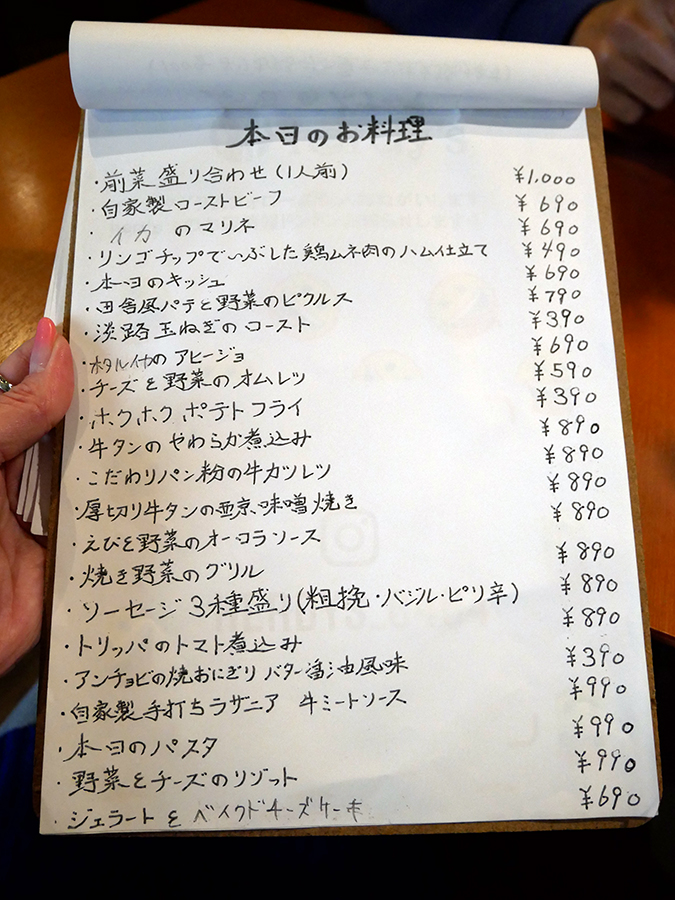 本日のお料理
・前菜盛り合わせ(1人前) ¥1,000
・自家製ローストビーフ ¥690
・イカ のマリネ ¥690
・リンゴチップでいぶした鶏ムネ肉のハム仕立て ¥490
・本日のキッシュ ¥690
・田舎風パテと野菜のピクルス ¥790
・淡路玉ねぎのロースト ¥390
・ホタルイカのアヒージョ ¥690
・チーズと野菜のオムレツ ¥590
・ホクホクポテトフライ ¥390
・牛タンのやわらか煮込み ¥890
・こだわりパン粉の牛カツレツ ¥890
・厚切り牛タンの西京味噌焼き ¥890
・えびと野菜のオーロラソース ¥890
・焼き野菜のグリル ¥890
・ソーセージ3種盛り(粗挽・バジル・ピリ辛) ¥890
・トリッパのトマト煮込み ¥890
・アンチョビの焼おにぎり バター醤油風味 ¥390
・自家製手打ちラザニア 牛ミートソース ¥990
・本日のパスタ ¥990
・野菜とチーズのリゾット ¥990
・ジェラートと ベイクドチーズケーキ ¥690